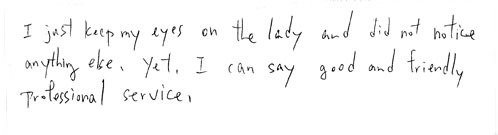 I just keep my eyes on the lady and did not notice
anything else. Yet, I can say good and friendly
professional service.